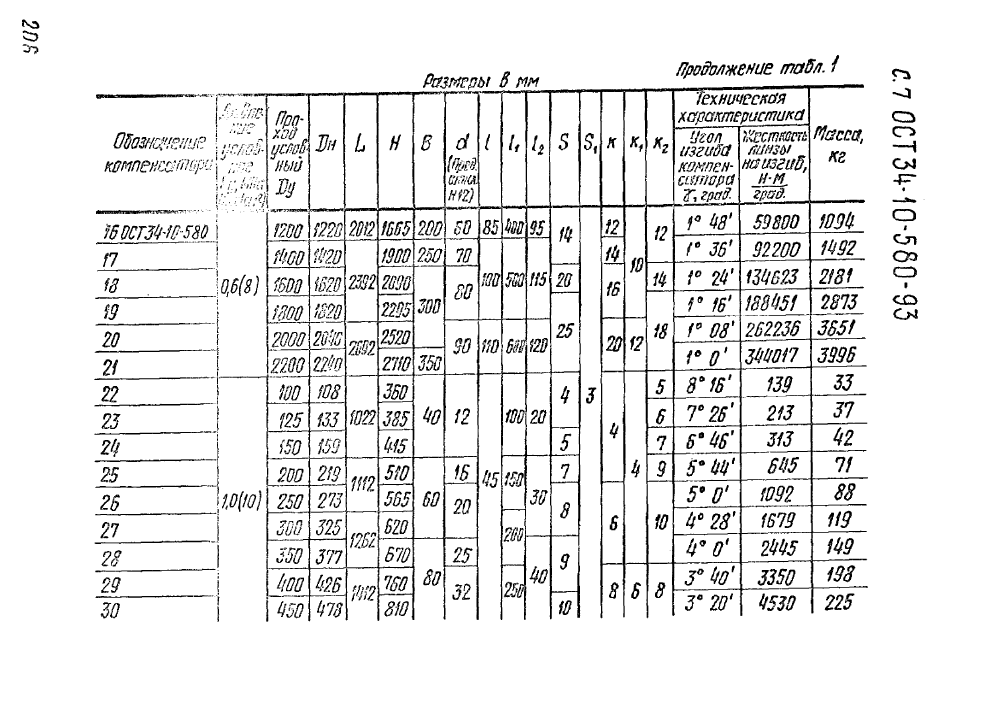 206
С. 7 ОСТ 34-10-580-93
Продолжение табл. 1
Размеры в мм
Обозначение компенсатора | Проход условный Dy | Dн | L | H | B | d | l | l₁ | l₂ | S | S₁ | к | к₁ | к₂ | Техническая характеристика | Масса, кг
Угол изгиба компенсатора γ, град. | Жесткость линзы на изгиб, Н·м/град.
16 ОСТ34-10-580 | 0,6(8) | 1200 | 1220 | 2012 | 1665 | 200 | 60 | 85 | 400 | 95 | 14 | 3 | 12 | 10 | 12 | 1° 48' | 59800 | 1094
17 | 1400 | 1420 | 2392 | 1900 | 250 | 70 | 100 | 500 | 115 | 14 | 1° 36' | 92200 | 1492
18 | 1600 | 1620 | 2090 | 300 | 80 | 20 | 16 | 14 | 1° 24' | 134623 | 2181
19 | 1800 | 1820 | 2295 | 25 | 18 | 1° 16' | 188451 | 2873
20 | 2000 | 2040 | 2692 | 2520 | 90 | 110 | 600 | 120 | 20 | 12 | 1° 08' | 262236 | 3651
21 | 2200 | 2240 | 2710 | 350 | 1° 0' | 344017 | 3996
22 | 1,0(10) | 100 | 108 | 1022 | 360 | 40 | 12 | 45 | 100 | 20 | 4 | 4 | 4 | 5 | 8° 16' | 139 | 33
23 | 125 | 133 | 385 | 6 | 7° 26' | 213 | 37
24 | 150 | 159 | 415 | 5 | 7 | 6° 46' | 313 | 42
25 | 200 | 219 | 1112 | 510 | 60 | 16 | 150 | 30 | 7 | 9 | 5° 44' | 645 | 71
26 | 250 | 273 | 565 | 20 | 8 | 6 | 10 | 5° 0' | 1092 | 88
27 | 300 | 325 | 1262 | 620 | 200 | 4° 28' | 1679 | 119
28 | 350 | 377 | 670 | 80 | 25 | 40 | 9 | 4° 0' | 2445 | 149
29 | 400 | 426 | 1412 | 760 | 32 | 250 | 8 | 6 | 8 | 3° 40' | 3350 | 198
30 | 450 | 478 | 810 | 10 | 3° 20' | 4530 | 225